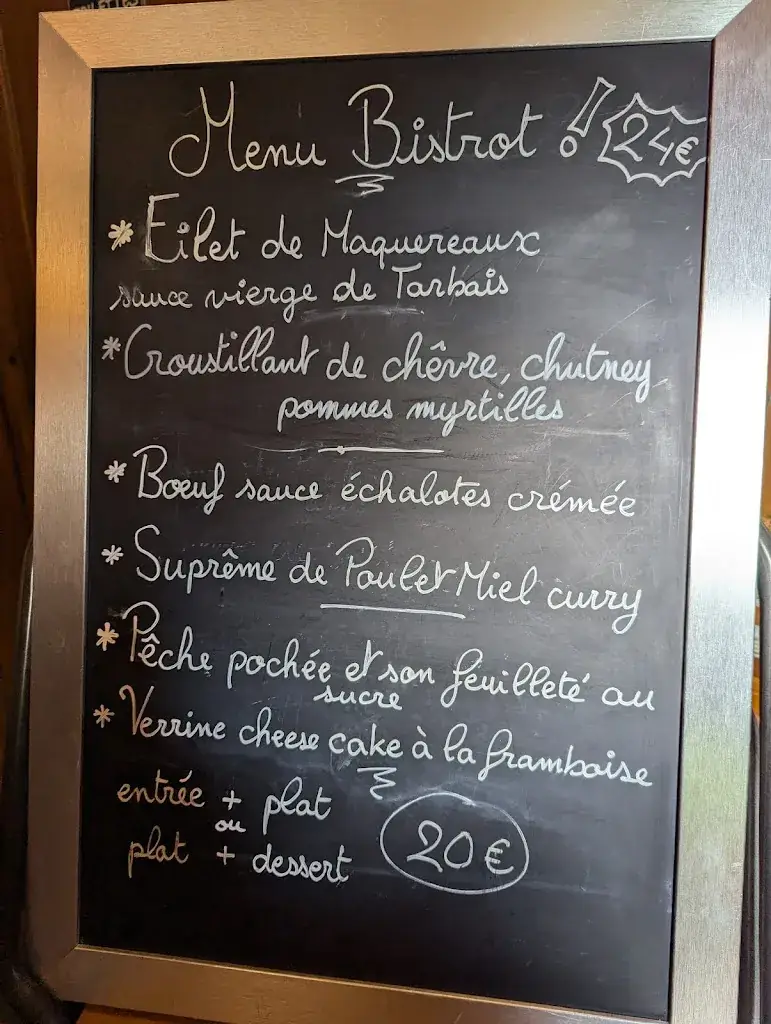 Menu Bistrot ! 24€
* Filet de Maquereaux
sauce vierge de Tarbais
* Croustillant de chêvre, chutney
pommes myrtilles
* Bœuf sauce échalotes crémée
* Suprême de Poulet Miel curry
* Pêche pochée et son feuilleté au
sucre
* Verrine cheese cake à la framboise
entrée + plat
ou
plat + dessert
20€